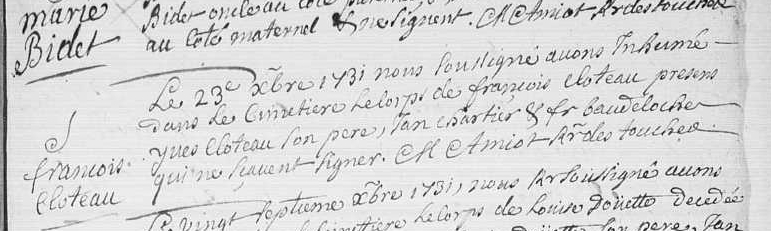 marie
Bidet
Bidet oncle au coté
au coté maternel & ne signent. M Amiot Rr destouches
Le 23e xbre 1731 nous soussigné avons Inhumé
dans Le Cimetiere Le corps de françois Cloteau presens
yves Cloteau son pere, Jan chartier & fr baudeloche
qui ne sçavent signer. M Amiot Rr. des touches.
francois
Cloteau
Le vingt septieme xbre 1731, nous Rr soussigné avons
Le corps de Louise doüette decedée
son pere, Jan